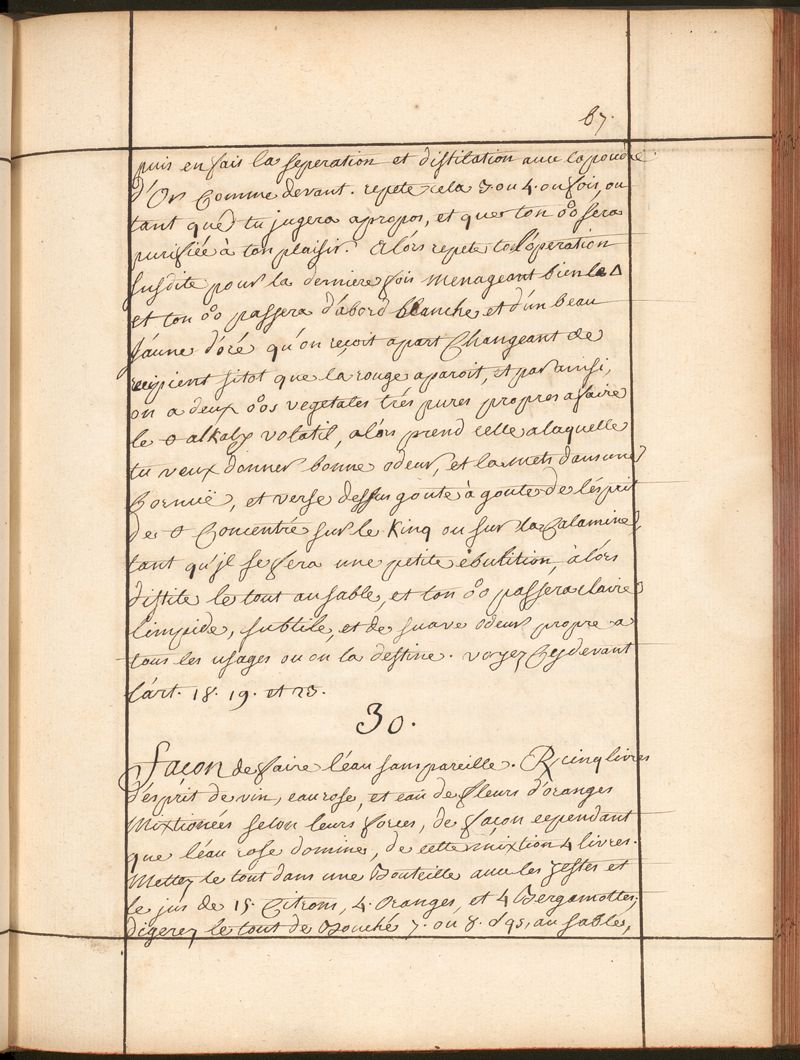 67.
puis en fais la seperation et distilation avec la poudre
d'Or Comme devant. repete cela 3 ou 4. ou fois, ou
tant que tu jugera apropos, et que ton o°o sera
purifiée à ton plaisir. Alórs repete tol'óperation
susdite pour la derniere fois menageant bien le Δ
et ton o°o passera d'abord blanche et d'ún beau
Jáune d'óré qu'on reçoit apart Changeant de
recipient sitot que la rouge aparoit, et par ainsi,
on a deux o°os vegetales trés pures propres afaire
le alkaly volatil, alórs prend celle alaquelle
tu veux donner bonne odeur, et la mets dans une
Cornuë, et verse dessus goute à goute de l'ésprit
de Concentré sur le Kinq ou sur la Calamine,
tant qu'jl se fera une petite ébulition, àlórs
distile le tout au sable, et ton o°o passera claire
limpide, subtile, et de suave odeur propre a
tous les usages ou on la destine. voyez Cy devant
l'árt. 18. 19. et 23.
30.
Façon de faire l'éau sans pareille. R cinq livres
d'ésprit de vin, eau rose, et eau de fleurs d'óranges
Mixtionées selon leurs forces, de façon cependant
que l'éau rose domine, de cette mixtion 4 livres.
Mettez le tout dans une Bouteille avec les zestes et
le jus de 15. Citrons, 4. Oranges, et 4 Bergamottes,
digerez le tout de Bouché 7. ou 8. au sable,